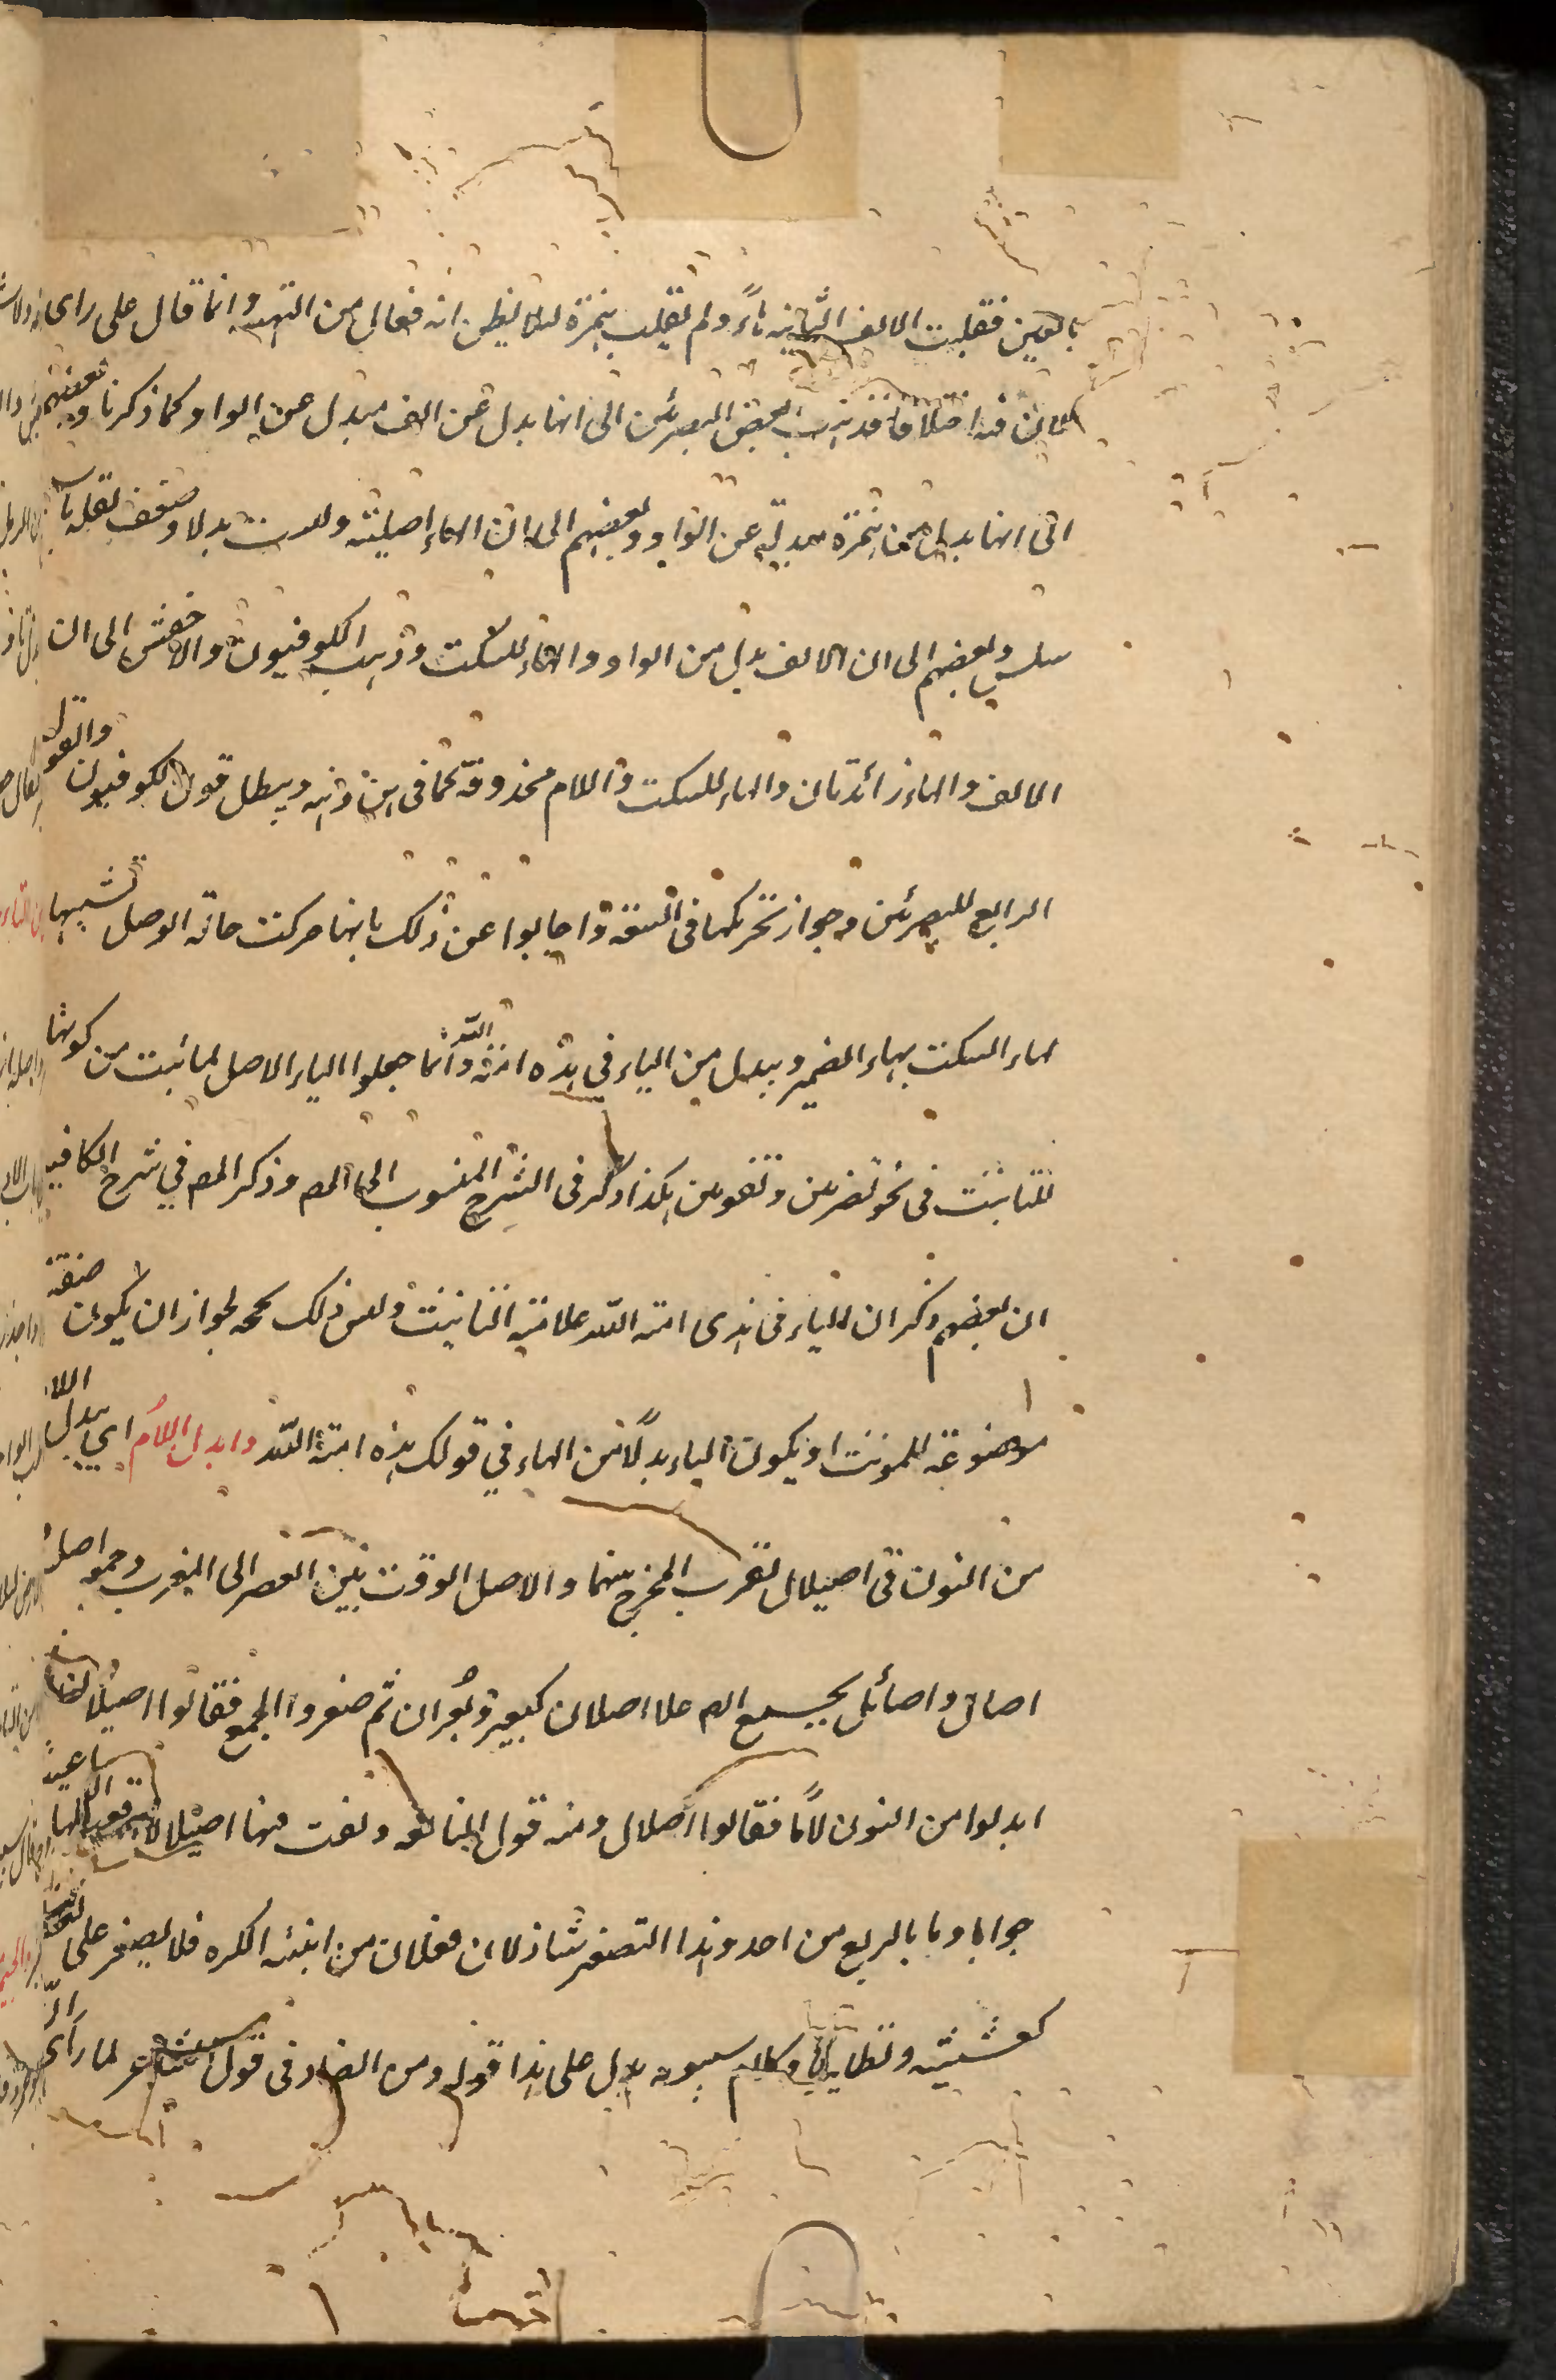 بالفين فقلبت الالف الثانية هاءً ولم تقلب همزة لئلا يظن انه فعال من التهنية وانما قال على راى
لان فيه اختلافا فذهب بعض البصرئين الى انها بدل عن الف مبدل عن الواو كما ذكرنا وبعضهم
الى انها بدل من همزة مبدلة عن الواو وبعضهم الى ان الهاء اصلية وليست بدلا وضعف لقلة باب
سلس وبعضهم الى ان الالف بدل من الواو والهاء للسكت وذهب الكوفيون والاخفش الى ان
الالف والهاء زائدتان والهاء للسكت واللام محذوفة كما فى هن وهنه ويبطل قول الكوفيون والقول
الرابع للبصرئين وجواز تحريكها فى السعة واجابوا عن ذلك بانها حركت حالة الوصل تشبيها
لهاء السكت بهاء الضمير وبدل من الياء في هذه امة الله وانما جعلوا الياء الاصل لما ثبت من كونها
للتانيث فى نحو تضربين وتقومين هكذا ذكر فى الشرح المنسوب الى المص وذكر المص في شرح الكافية
ان بعضهم ذكر ان الياء فى هذى امة الله علامة التانيث وليس ذلك بحجة لجواز ان يكون صيغة
موضوعة للمونث او يكون الياء بدلًا من الهاء في قولك هذه امة الله وابدل اللام اي يبدل اللام
من النون فى اصيلال لقرب المخرج بينهما والاصل الوقت بين العصر الى المغرب وجمعه اصل
اصال واصائل يجمع ايضا على اصلان كبعير وبُعران ثم صغروا الجمع فقالوا اصيلان ثم
ابدلوا من النون لامًا فقالوا اصيلال ومنه قول النابغة وقفت فيها اصيلالا اسائلها
جوابا وما بالربع من احد وهذا التصغير شاذ لان فعلان من ابنية الكثرة فلا يصغر على لفظه
كعشيشية ونظايرها وكلام سيبويه يدل على هذا قوله ومن الضاد فى قول الشاعر لما راى